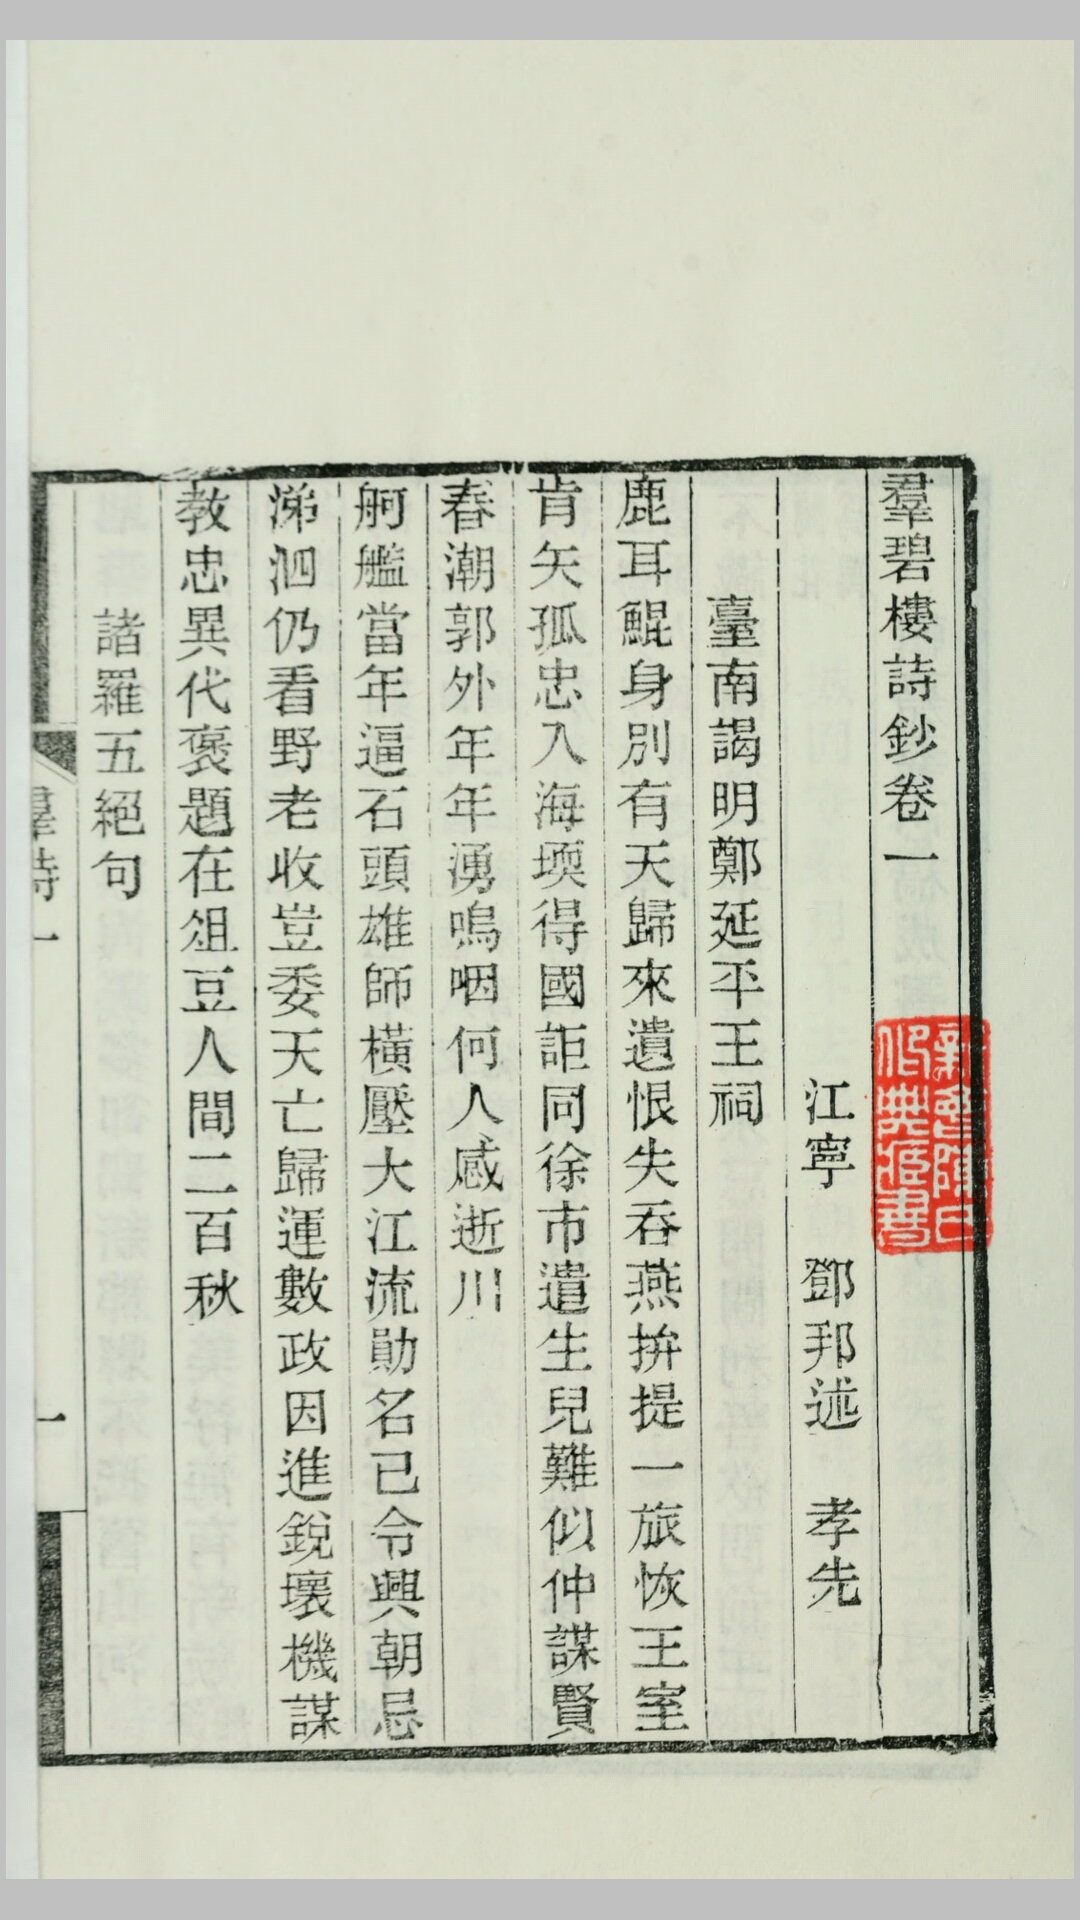 羣碧樓詩鈔卷一
江寧 鄧邦述 孝先
臺南謁明鄭延平王祠
鹿耳鯤身別有天歸來遺恨失吞燕拚提一旅恢王室
肯矢孤忠入海堧得國詎同徐市遣生兒難似仲謀賢
春潮郭外年年湧嗚咽何人感逝川
舸艦當年逼石頭雄師橫壓大江流勛名已令興朝忌
涕泗仍看野老收豈委天亡歸運數政因進銳壞機謀
教忠異代褒題在俎豆人間二百秋
諸羅五絕句
羣詩一
一